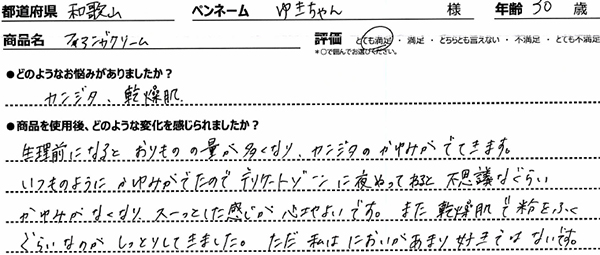 都道府県 和歌山 ペンネーム ゆきちゃん 様 年齢 30 歳
商品名 フェミニーナクリーム 評価 とても満足 ・ 満足 ・ どちらとも言えない ・ 不満足 ・ とても不満足
*○で囲んでお選びください。
●どのようなお悩みがありましたか？
カンジタ、乾燥肌
●商品を使用後、どのような変化を感じられましたか？
生理前になると おりものの量が多くなり、カンジタのかゆみがでてきます。
いつものように かゆみがでたので デリケートゾーンに夜ぬってねると 不思議なぐらい
かゆみがなくなり スーっとした感じが 心地よいです。 また 乾燥肌で粉をふく
ぐらいなのが しっとりしてきました。 ただ 私は においがあまり 好きではないです。